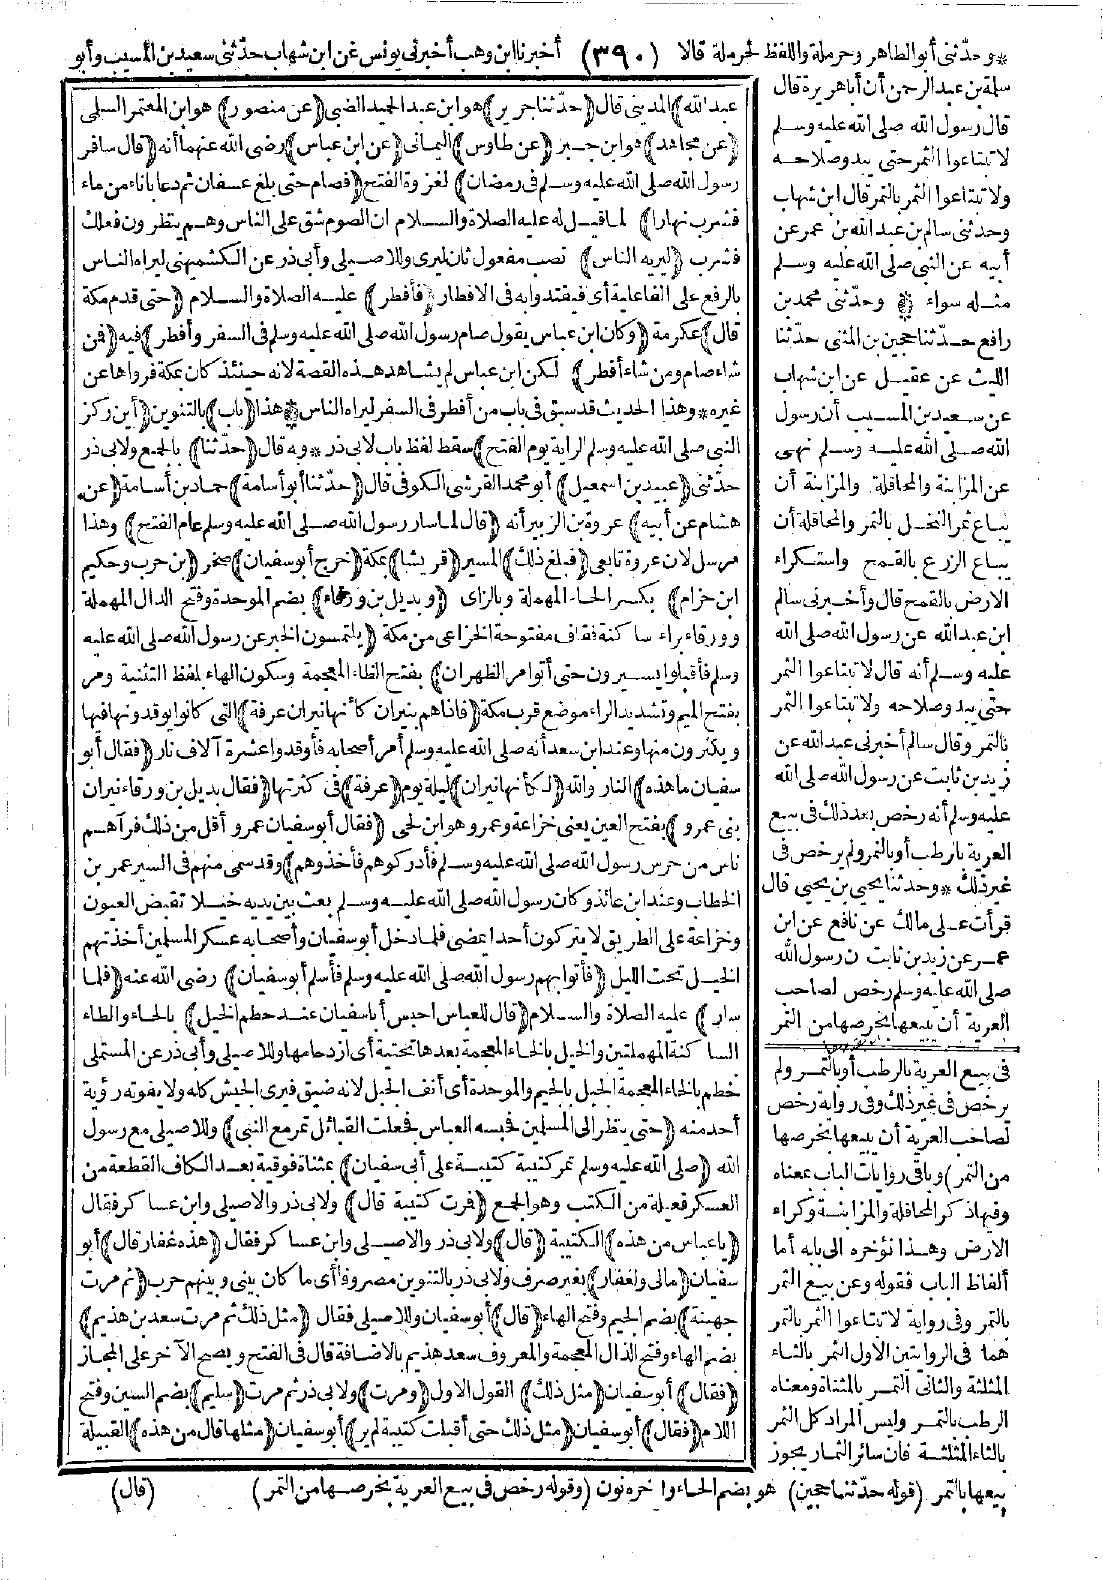 *وحدّثنى أبو الطاهر وحرملة واللفظ لحرملة قالا (٣٩٠) أخبرنا ابن وهب أخبرنى يونس عن ابن شهاب حدّثنى سعيد بن المسيب وأبو
سلمة بن عبد الرحمن أن أبا هريرة قال
قال رسول الله صلى الله عليه وسلم
لا تبتاعوا الثمر حتى يبدو صلاحه
ولا تبتاعوا الثمر بالتمر قال ابن شهاب
وحدثنى سالم بن عبد الله بن عمر عن
أبيه عن النبى صلى الله عليه وسلم
مثله سواء ۞ وحدّثنى محمد بن
رافع حدّثنا حجين بن المثنى حدّثنا
الليث عن عقيل عن ابن شهاب
عن سعيد بن المسيب أن رسول
الله صلى الله عليه وسلم نهى
عن المزابنة والمحاقلة والمزابنة أن
يباع ثمر النخل بالتمر والمحاقلة أن
يباع الزرع بالقمح واستكراء
الارض بالقمح قال وأخبرنى سالم
ابن عبد الله عن رسول الله صلى الله
عليه وسلم أنه قال لا تبتاعوا الثمر
حتى يبدو صلاحه ولا تبتاعوا الثمر
بالتمر وقال سالم أخبرنى عبد الله عن
زيد بن ثابت عن رسول الله صلى الله
عليه وسلم أنه رخص بعد ذلك فى بيع
العرية بالرطب أو بالتمر ولم يرخص فى
غير ذلك *وحدثنا يحيى بن يحيى قال
قرأت على مالك عن نافع عن ابن
عمر عن زيد بن ثابت ن رسول الله
صلى الله عليه وسلم رخص لصاحب
العرية أن يبيعها بخرصها من التمر
فى بيع العرية بالرطب أو بالتمر ولم
يرخص فى غير ذلك وفى رواية رخص
لصاحب العرية أن يبيعها بخرصها
من التمر) وباقى روايات الباب بمعناه
وفيها ذكر المحاقلة والمزابنة وكراء
الارض وهذا نؤخره الى بابه أما
ألفاظ الباب فقوله وعن بيع الثمر
بالتمر وفى رواية لا تبتاعوا الثمر بالتمر
هما فى الروايتين الاول الثمر بالثاء
المثلثة والثانى التمر بالمثناة ومعناه
الرطب بالتمر وليس المراد كل الثمر
بالثاء المثلثة فان سائر الثمار يجوز
بيعها بالتمر (قوله حدّثنا حجين) هو بضم الحاء وآخره نون (وقوله رخص فى بيع العرية بخرصها من التمر)
عبد الله) المدينى قال (حدّثنا جرير) هو ابن عبد الحميد الضبى (عن منصور) هو ابن المعتمر السلمى
(عن مجاهد) هو ابن جبير (عن طاوس) اليمانى (عن ابن عباس) رضى الله عنهما أنه (قال سافر
رسول الله صلى الله عليه وسلم فى رمضان) لغزوة الفتح (فصام حتى بلغ عسفان ثم دعا باناء من ماء
فشرب نهارا) لما قيل له عليه الصلاة والسلام ان الصوم شق على الناس وهم ينظرون فعلك
فشرب (ليريه الناس) نصب مفعول ثان ليرى وللاصيلى وأبى ذر عن الكشميهنى ليراه الناس
بالرفع على الفاعلية أى فيقتدوا به فى الافطار (فأفطر) عليه الصلاة والسلام (حتى قدم مكة
قال) عكرمة (وكان ابن عباس يقول صام رسول الله صلى الله عليه وسلم فى السفر وأفطر) فيه (فمن
شاء صام ومن شاء أفطر) لكن ابن عباس لم يشاهد هذه القصة لانه حينئذ كان بمكة فرواها عن
غيره *وهذا الحديث قد سبق فى باب من أفطر فى السفر ليراه الناس ۞ هذا (باب) بالتنوين (أين ركز
النبى صلى الله عليه وسلم الراية يوم الفتح) سقط لفظ باب لابى ذر *وبه قال (حدّثنا) بالجمع ولابى ذر
حدّثنى (عبيد بن اسمعيل) أبو محمد القرشى الكوفى قال (حدّثنا أبو أسامة) حماد بن أسامة (عن
هشام عن أبيه) عروة بن الزبير أنه (قال لما سار رسول الله صلى الله عليه وسلم عام الفتح) وهذا
مرسل لان عروة تابعى (فبلغ ذلك) المسير (قريشا) بمكة (خرج أبو سفيان) صخر (بن حرب وحكيم
ابن حزام) بكسر الحاء المهملة وبالزاى (وبديل بن ورقاء) بضم الموحدة وفتح الدال المهملة
وورقاء براء ساكنة فقاف مفتوحة الخزاعى من مكة (يلتمسون الخبر عن رسول الله صلى الله عليه
وسلم فأقبلوا يسيرون حتى أتوا مر الظهران) بفتح الظاء المعجمة وسكون الهاء بلفظ التثنية ومر
بفتح الميم وتشديد الراء موضع قرب مكة (فاذا هم بنيران كأنها نيران عرفة) التى كانوا يوقدونها فيها
ويكثرون منها وعند ابن سعد أنه صلى الله عليه وسلم أمر أصحابه فأوقدوا عشرة آلاف نار (فقال أبو
سفيان ما هذه) النار والله (لكأنها نيران) ليلة يوم (عرفة) فى كثرتها (فقال بديل بن ورقاء نيران
بنى عمرو) بفتح العين يعنى خزاعة وعمرو هو ابن لحى (فقال أبو سفيان عمرو أقل من ذلك فرآهم
ناس من حرس رسول الله صلى الله عليه وسلم فأدركوهم فأخذوهم) وقد سمى منهم فى السير عمر بن
الخطاب وعند ابن عائذ وكان رسول الله صلى الله عليه وسلم بعث بين يديه خيلا تقبض العيون
وخزاعة على الطريق لا يتركون أحدا يمضى فلما دخل أبو سفيان وأصحابه عسكر المسلمين أخذتهم
الخيل تحت الليل (فأتوا بهم رسول الله صلى الله عليه وسلم فأسلم أبو سفيان) رضى الله عنه (فلما
سار) عليه الصلاة والسلام (قال للعباس احبس أبا سفيان عند حطم الخيل) بالحاء والطاء
الساكنة المهملتين والخيل بالخاء المعجمة بعدها تحتية أى ازدحامها وللاصيلى وأبى ذر عن المستملى
خطم بالخاء المعجمة الجبل بالجيم والموحدة أى أنف الجبل لانه ضيق فيرى الجيش كله ولا يفوته رؤية
أحد منه (حتى ينظر الى المسلمين فحبسه العباس فجعلت القبائل تمر مع النبى) وللاصيلى مع رسول
الله (صلى الله عليه وسلم تمر كتيبة كتيبة على أبى سفيان) بمثناة فوقية بعد الكاف القطعة من
العسكر فعيلة من الكتب وهو الجمع (فمرت كتيبة قال) ولابى ذر والاصيلى وابن عساكر فقال
(يا عباس من هذه) الكتيبة (قال) ولابى ذر والاصيلى وابن عساكر فقال (هذه غفار قال) أبو
سفيان (مالى ولغفار) بغير صرف ولابى ذر بالتنوين مصروفا أى ما كان بينى وبينهم حرب (ثم مرت
جهينة) بضم الجيم وفتح الهاء (قال) أبو سفيان وللاصيلى فقال (مثل ذلك ثم مرت سعد بن هذيم)
بضم الهاء وفتح الذال المعجمة والمعروف سعد هذيم بالاضافة قال فى الفتح ويصح الآخر على المجاز
(فقال) أبو سفيان (مثل ذلك) القول الاول (ومرت) ولابى ذر ثم مرت (سليم) بضم السين وفتح
اللام (فقال) أبو سفيان (مثل ذلك حتى أقبلت كتيبة لم ير) أبو سفيان (مثلها قال من هذه) القبيلة
(قال)